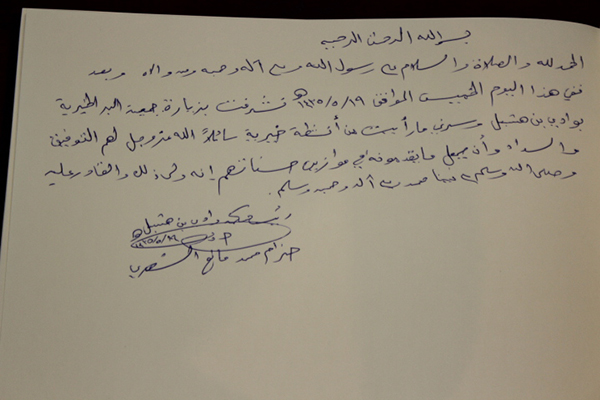 بسم الله الرحمن الرحيم
الحمد لله والصلاة والسلام على رسول الله وعلى آله وصحبه ومن والاه وبعد
ففي هذا اليوم الخميس الموافق ١٤٣٥/٥/١٩هـ تشرفت بزيارة جمعية البر الخيرية
بوادي بن هشبل وسرني ما رأيت من أنشطة خيرية سائلاً الله عز وجل لهم التوفيق
والسداد وأن يجعل ما يقدمونه في موازين حسناتهم إنه ولي ذلك والقادر عليه
وصلى الله وسلم على نبينا محمد وعلى آله وصحبه وسلم.
رئيس محكمة وادي بن هشبل
١٤٣٥/٥/١٩هـ
حزام محمد مانع الشهري